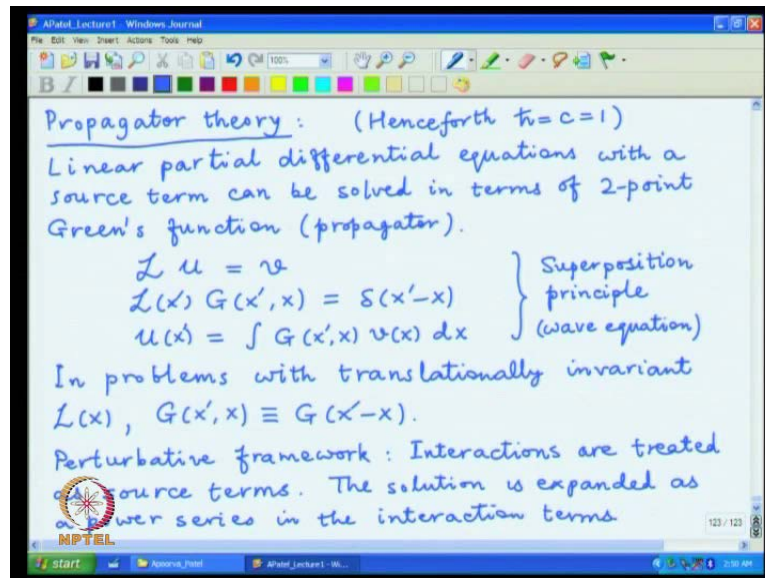 APatel_Lecture1 - Windows Journal
File Edit View Insert Actions Tools Help
100%
B I
Propagator theory : (Henceforth ħ = c = 1)
Linear partial differential equations with a
source term can be solved in terms of 2-point
Green's function (propagator).
ℒ u = v
ℒ(x') G(x', x) = δ(x'-x)
u(x') = ∫ G(x', x) v(x) dx
} Superposition
principle
(wave equation)
In problems with translationally invariant
ℒ(x), G(x', x) ≡ G(x'-x).
Perturbative framework : Interactions are treated
as source terms. The solution is expanded as
a power series in the interaction terms
NPTEL
123 / 123
start Apoorva_Patel APatel_Lecture1 - Wi... 2:50 AM